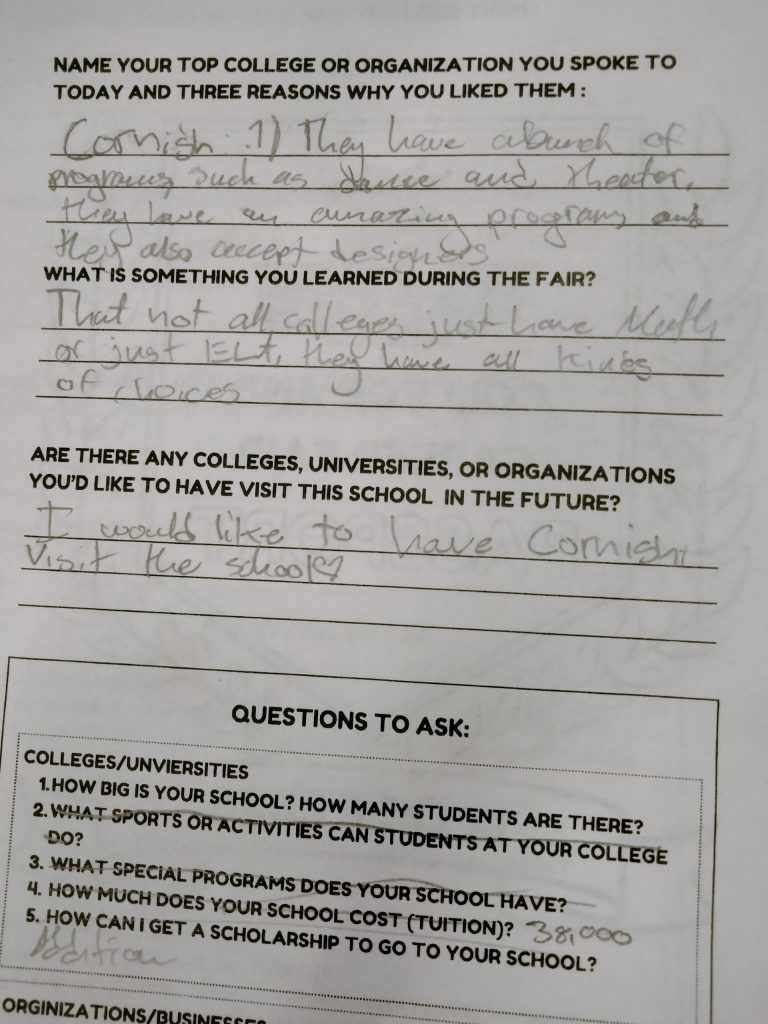 NAME YOUR TOP COLLEGE OR ORGANIZATION YOU SPOKE TO
TODAY AND THREE REASONS WHY YOU LIKED THEM :
Cornish .1) They have abunch of
programs such as dance and theater,
they have an amazing programs and
they also accept designers
WHAT IS SOMETHING YOU LEARNED DURING THE FAIR?
That not all colleges just have Math
or just ELA, they have all kinds
of choices
ARE THERE ANY COLLEGES, UNIVERSITIES, OR ORGANIZATIONS
YOU'D LIKE TO HAVE VISIT THIS SCHOOL IN THE FUTURE?
I would like to have Cornish
Visit the school
QUESTIONS TO ASK:
COLLEGES/UNVIERSITIES
1. HOW BIG IS YOUR SCHOOL? HOW MANY STUDENTS ARE THERE?
2. WHAT SPORTS OR ACTIVITIES CAN STUDENTS AT YOUR COLLEGE
DO?
3. WHAT SPECIAL PROGRAMS DOES YOUR SCHOOL HAVE?
4. HOW MUCH DOES YOUR SCHOOL COST (TUITION)? 38,000
5. HOW CAN I GET A SCHOLARSHIP TO GO TO YOUR SCHOOL?
Addition
ORGINIZATIONS/BUSINESSES